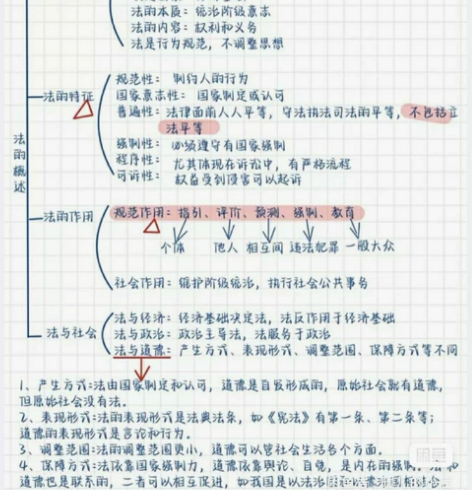 法的本质：统治阶级意志
法的内容：权利和义务
法是行为规范，不调整思想
法的概述
法的特征
规范性：制约人的行为
国家意志性：国家制定或认可
普遍性：法律面前人人平等，守法执法司法的平等，不包括立
法平等
强制性：必须遵守有国家强制
程序性：尤其体现在诉讼中，有严格流程
可诉性：权益受到侵害可以起诉
法的作用
规范作用：指引、评价、预测、强制、教育
个体 他人 相互间 违法犯罪 一般大众
社会作用：维护阶级统治，执行社会公共事务
法与社会
法与经济：经济基础决定法，法反作用于经济基础
法与政治：政治主导法，法服务于政治
法与道德：产生方式、表现形式、调整范围、保障方式等不同
1、产生方式：法由国家制定和认可，道德是自发形成的，原始社会就有道德，
但原始社会没有法。
2、表现形式：法的表现形式是法典法条，如《宪法》有第一条、第二条等；
道德的表现形式是言论和行为。
3、调整范围：法的调整范围更小，道德可以管社会生活各个方面。
4、保障方式：法依靠国家强制力，道德依靠舆论、自觉，是内在的强制，法和
道德也是联系的，二者可以相互促进，如我国是以法治国和以德治国相结合。